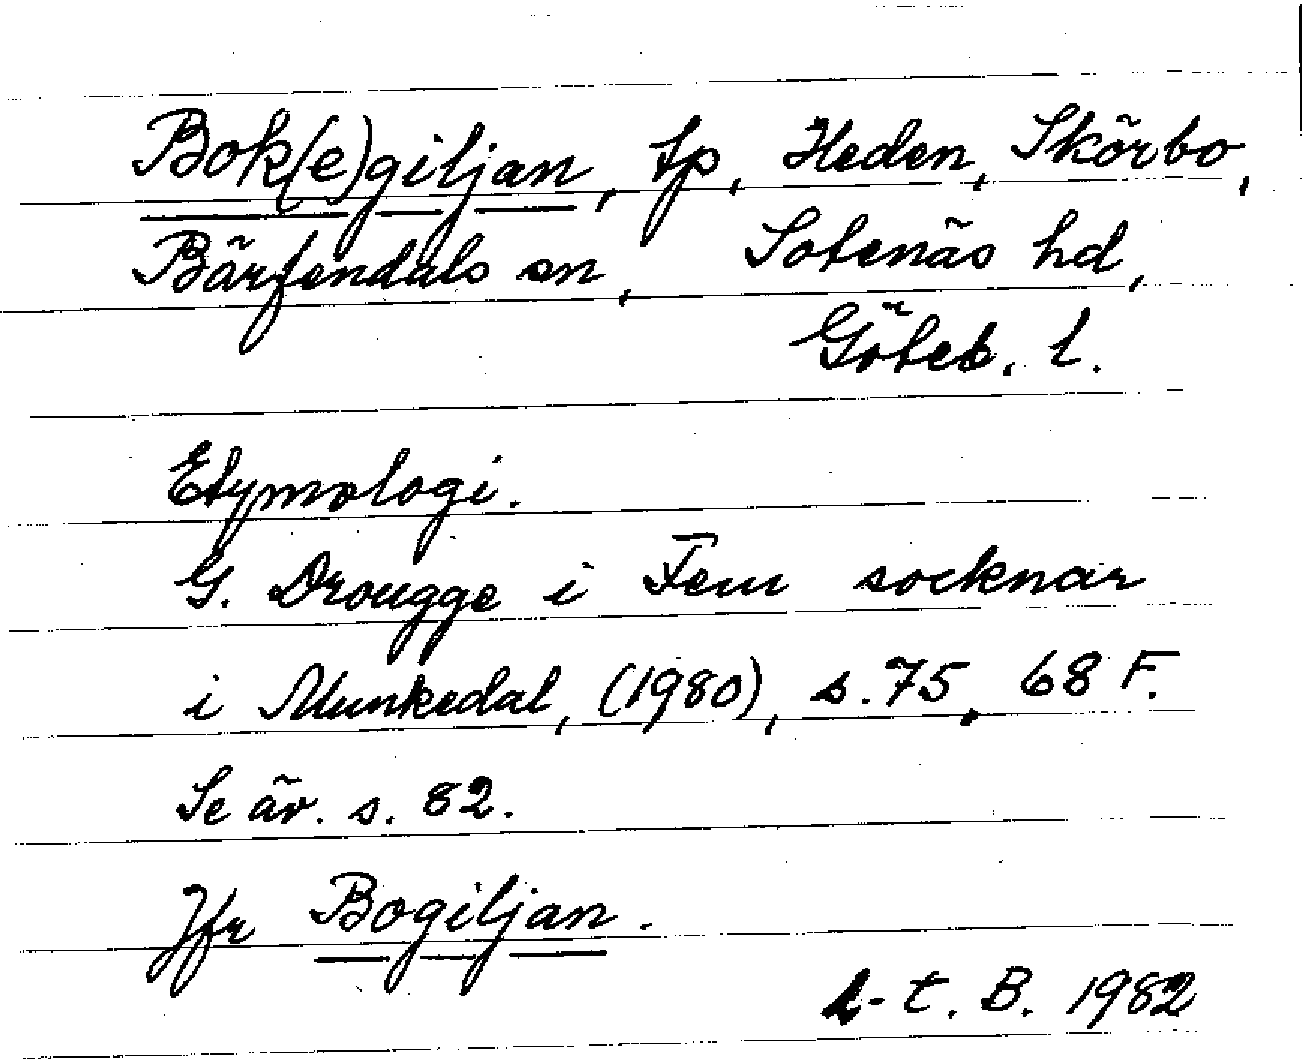 Bok(e)giljan, tp, Heden, Skörbo,
Bärfendals sn, Sotenäs hd,
Göteb. l.
Etymologi.
G. Drougge i Fem socknar
i Munkedal, (1980), s. 75, 68 F.
Se äv. s. 82.
Jfr Bogiljan.
t. B. 1982